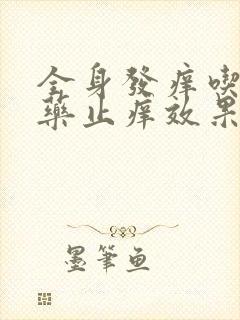 全身發痒喫
藥止痒效果
墨筆魚